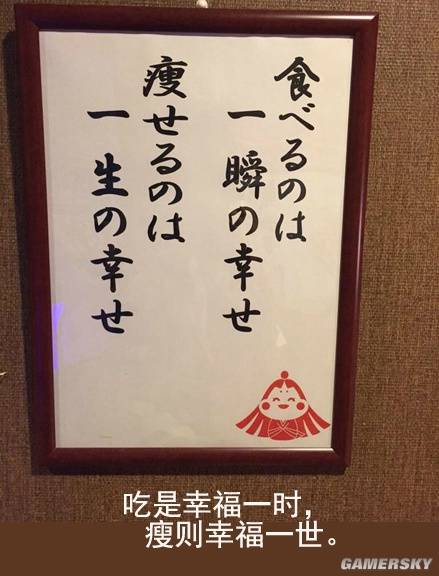 食べるのは
一瞬の幸せ
痩せるのは
一生の幸せ
吃是幸福一时，
瘦则幸福一世。
GAMERSKY